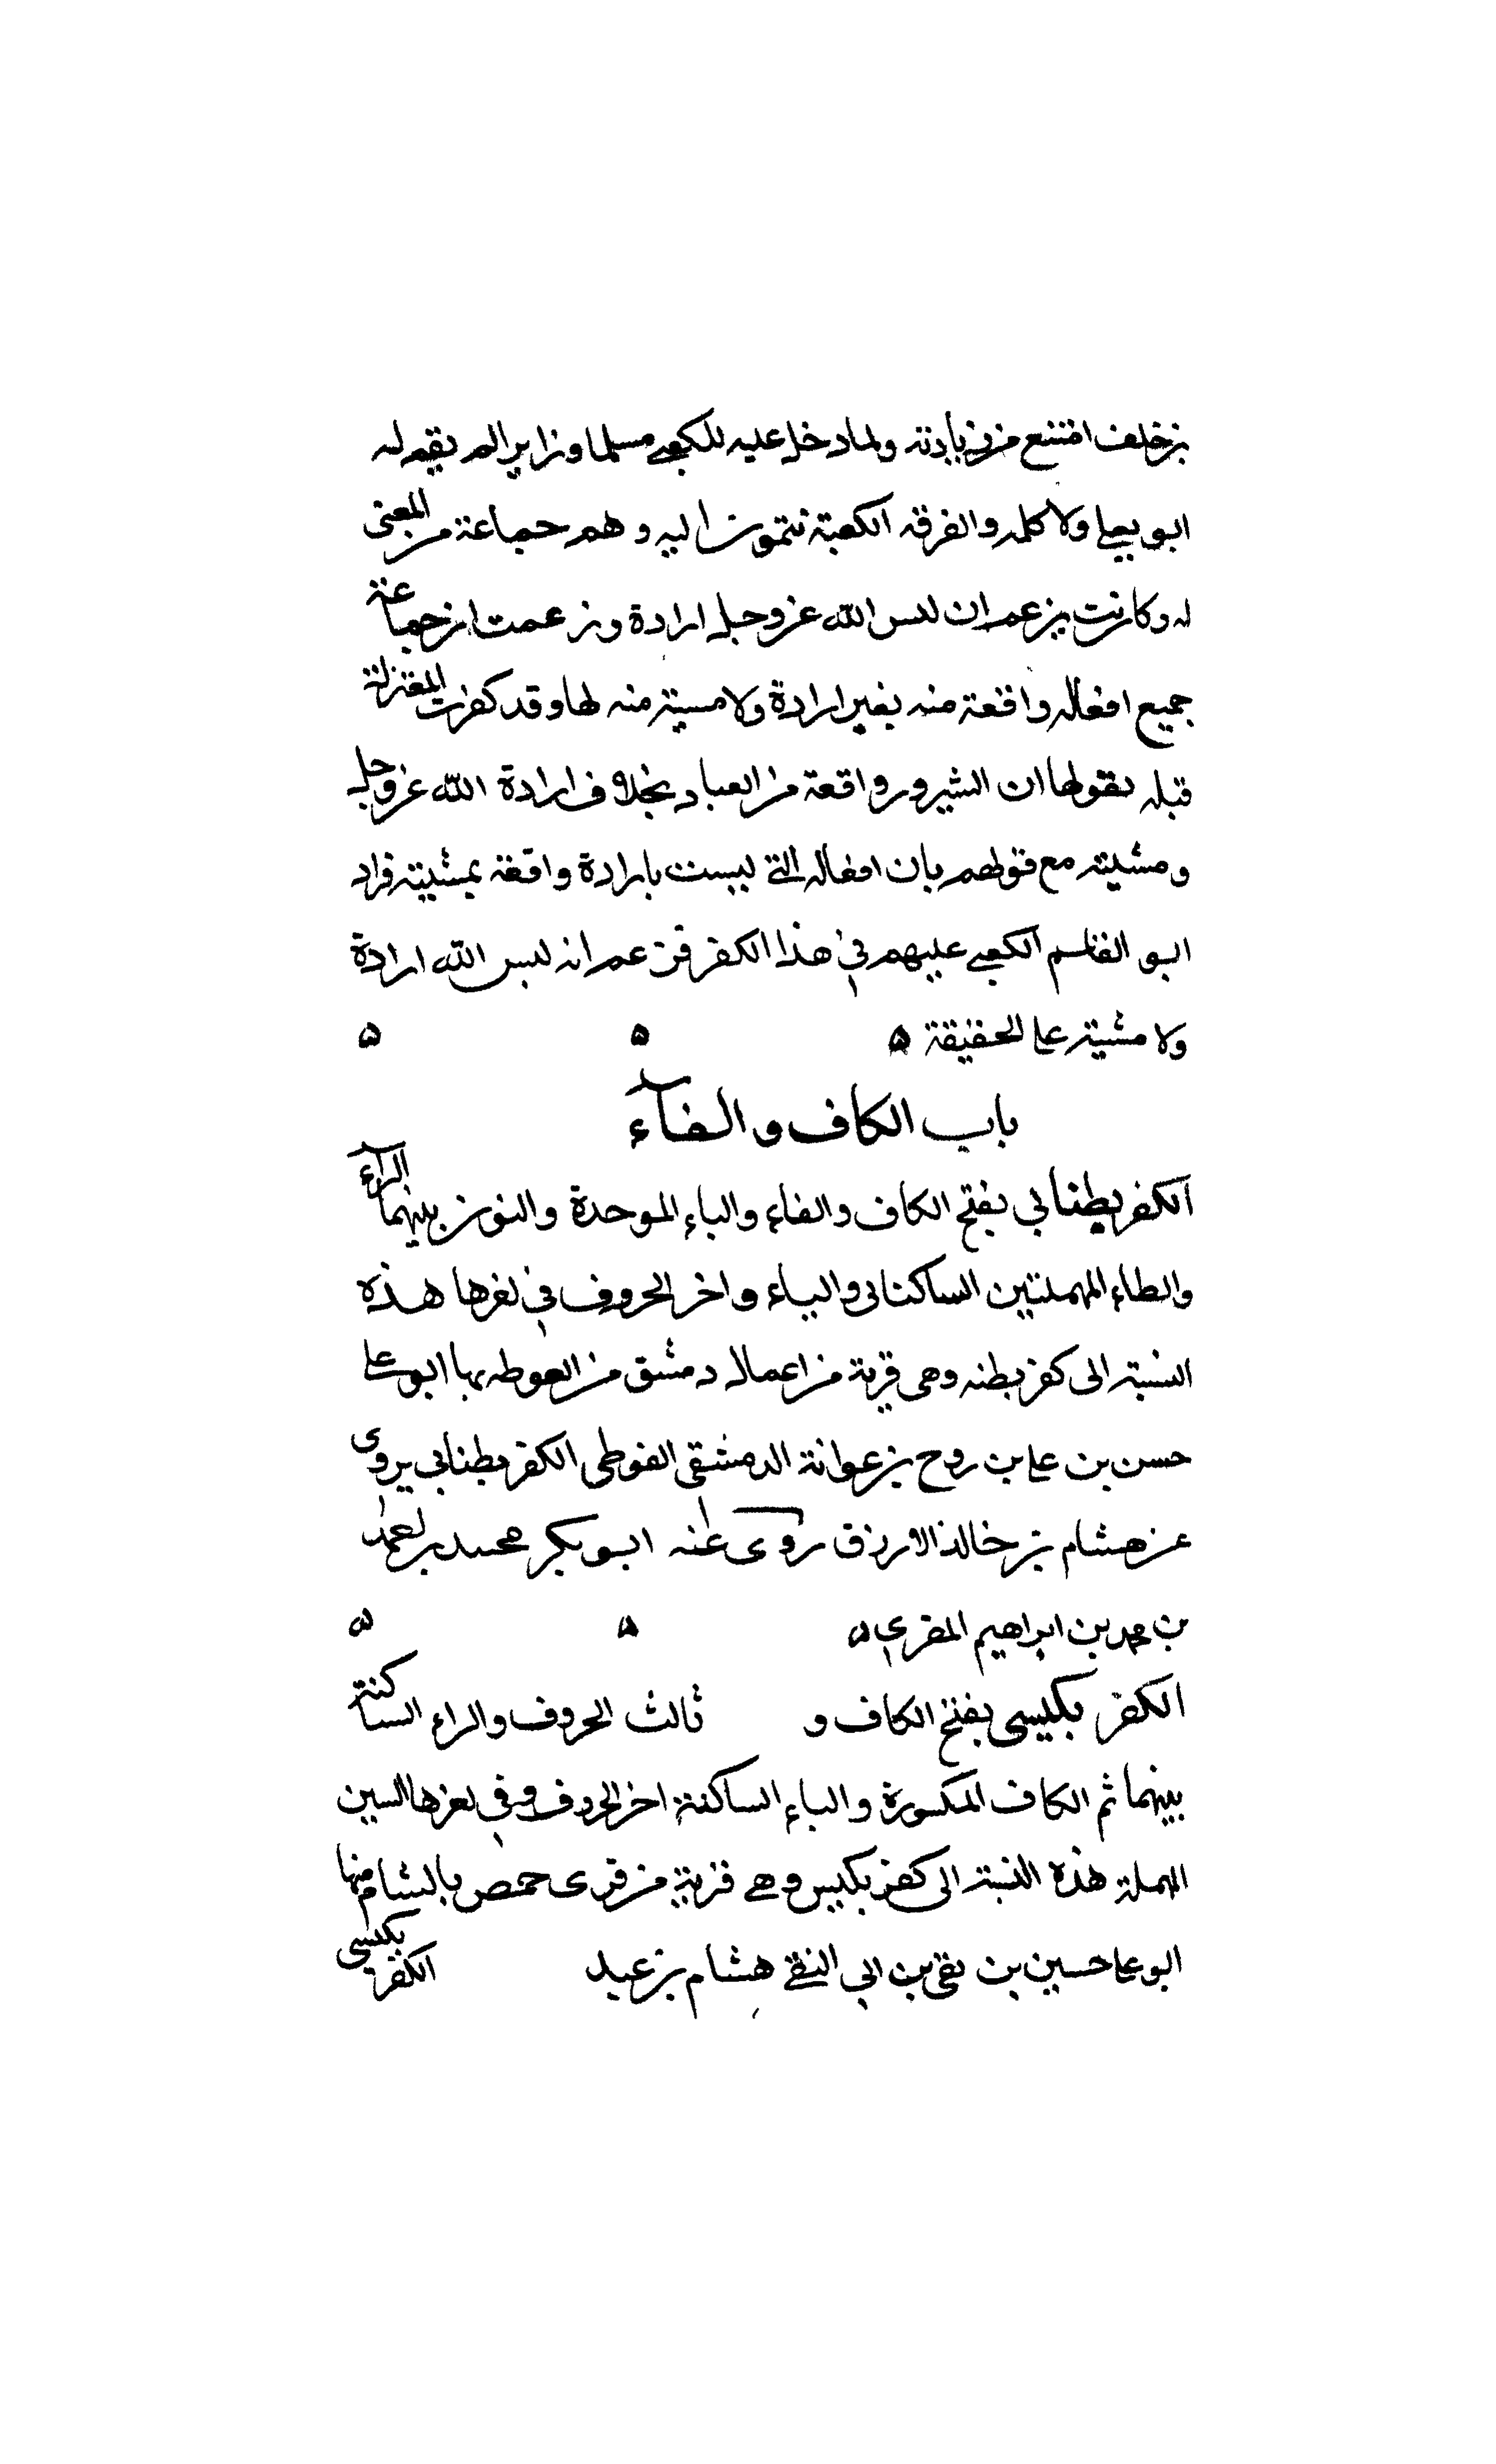 بن خلف امتنع من زيارته ولما دخل عليه الكعبي مسلما وزايرا لم يقم له
ابو يعلى ولا كلمه والفرقه الكعبية ينتمون اليه وهم جماعة من المعتزلة
له وكان يزعم ان ليس الله عز وجل ارادة وزعمت ان جماعة
جميع افعاله واقعة منه بغير ارادة ولا مشية منه لها وقد كفرت المعتزلة
قبله بقولها ان الشرور واقعة من العباد بخلاف ارادة الله عز وجل
ومشيته مع قولهم بان افعاله التي ليست بارادة واقعة بمشيته فزاد
ابو القاسم الكعبي عليهم في هذا الكفر فزعم انه ليس الله ارادة
ولا مشية على الحقيقة ه ه ه
باب الكاف والفآء
الكفربطنابي بفتح الكاف والفاء والباء الموحدة والنون بينهما الراء
والطاء المهملتين الساكنان والياء واخر الحروف في اخرها هذه
النسبة الى كفربطنه وهي قرية من اعمال دمشق من الغوطه بها ابو على
حسن بن على بن روح بن عوانة الدمشقى الغوطى الكفربطنابي يروى
عن هشام بن خالد الازرق روى عنه ابو بكر محمد بن
بن محمد بن ابراهيم المقري ه ه ه
الكفر بكيسى بفتح الكاف و ثالث الحروف والراء الساكنة
بينهما ثم الكاف المكسورة والياء الساكنة اخر الحروف وفي اخرها السين
المهملة هذه النسبة الى كفر بكيس وهي قرية من قرى حمص بالشام منها
ابو على حسين بن تقى بن ابي التقي هشام بن عبد الكفر بكيسى